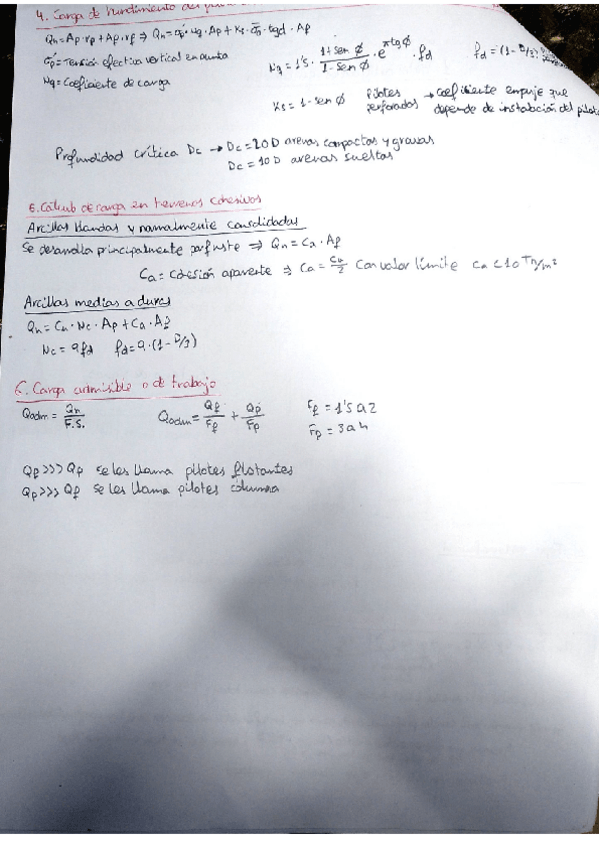 4. Carga de hundimiento del
Qn = Ap·rp + Af·rf ⇒ Qn = σp'·Nq·Ap + Ks·σo'·tgd·Af
σp' = Tensión efectiva vertical en punta
Nq = Coeficiente de carga
Nq = 1'5 · (1 + sen Ø)/(1 - sen Ø) · e^(π tg Ø) · fd
fd = (1 - D/3)
Ks = 1 - sen Ø pilotes perforados → coeficiente empuje que depende de instalación del pilote
Profundidad crítica Dc → Dc = 20D arenas compactas y gravas
Dc = 10D arenas sueltas
5. Cálculo de carga en terrenos cohesivos
Arcillas blandas y normalmente consolidadas
Se desarrolla principalmente por fuste ⇒ Qn = Ca · Af
Ca = cohesión aparente ⇒ Ca = Cu/2 con valor límite Ca < 10 Tn/m²
Arcillas medias a duras
Qn = Cu · Nc · Ap + Ca · Af
Nc = 9fd fd = 9·(1 - D/3)
6. Carga admisible o de trabajo
Qadm = Qn/F.S. Qadm = Qf/Ff + Qp/Fp Ff = 1'5 a 2
Fp = 3 a 4
Qf >>> Qp se les llama pilotes flotantes
Qp >>> Qf se les llama pilotes columna